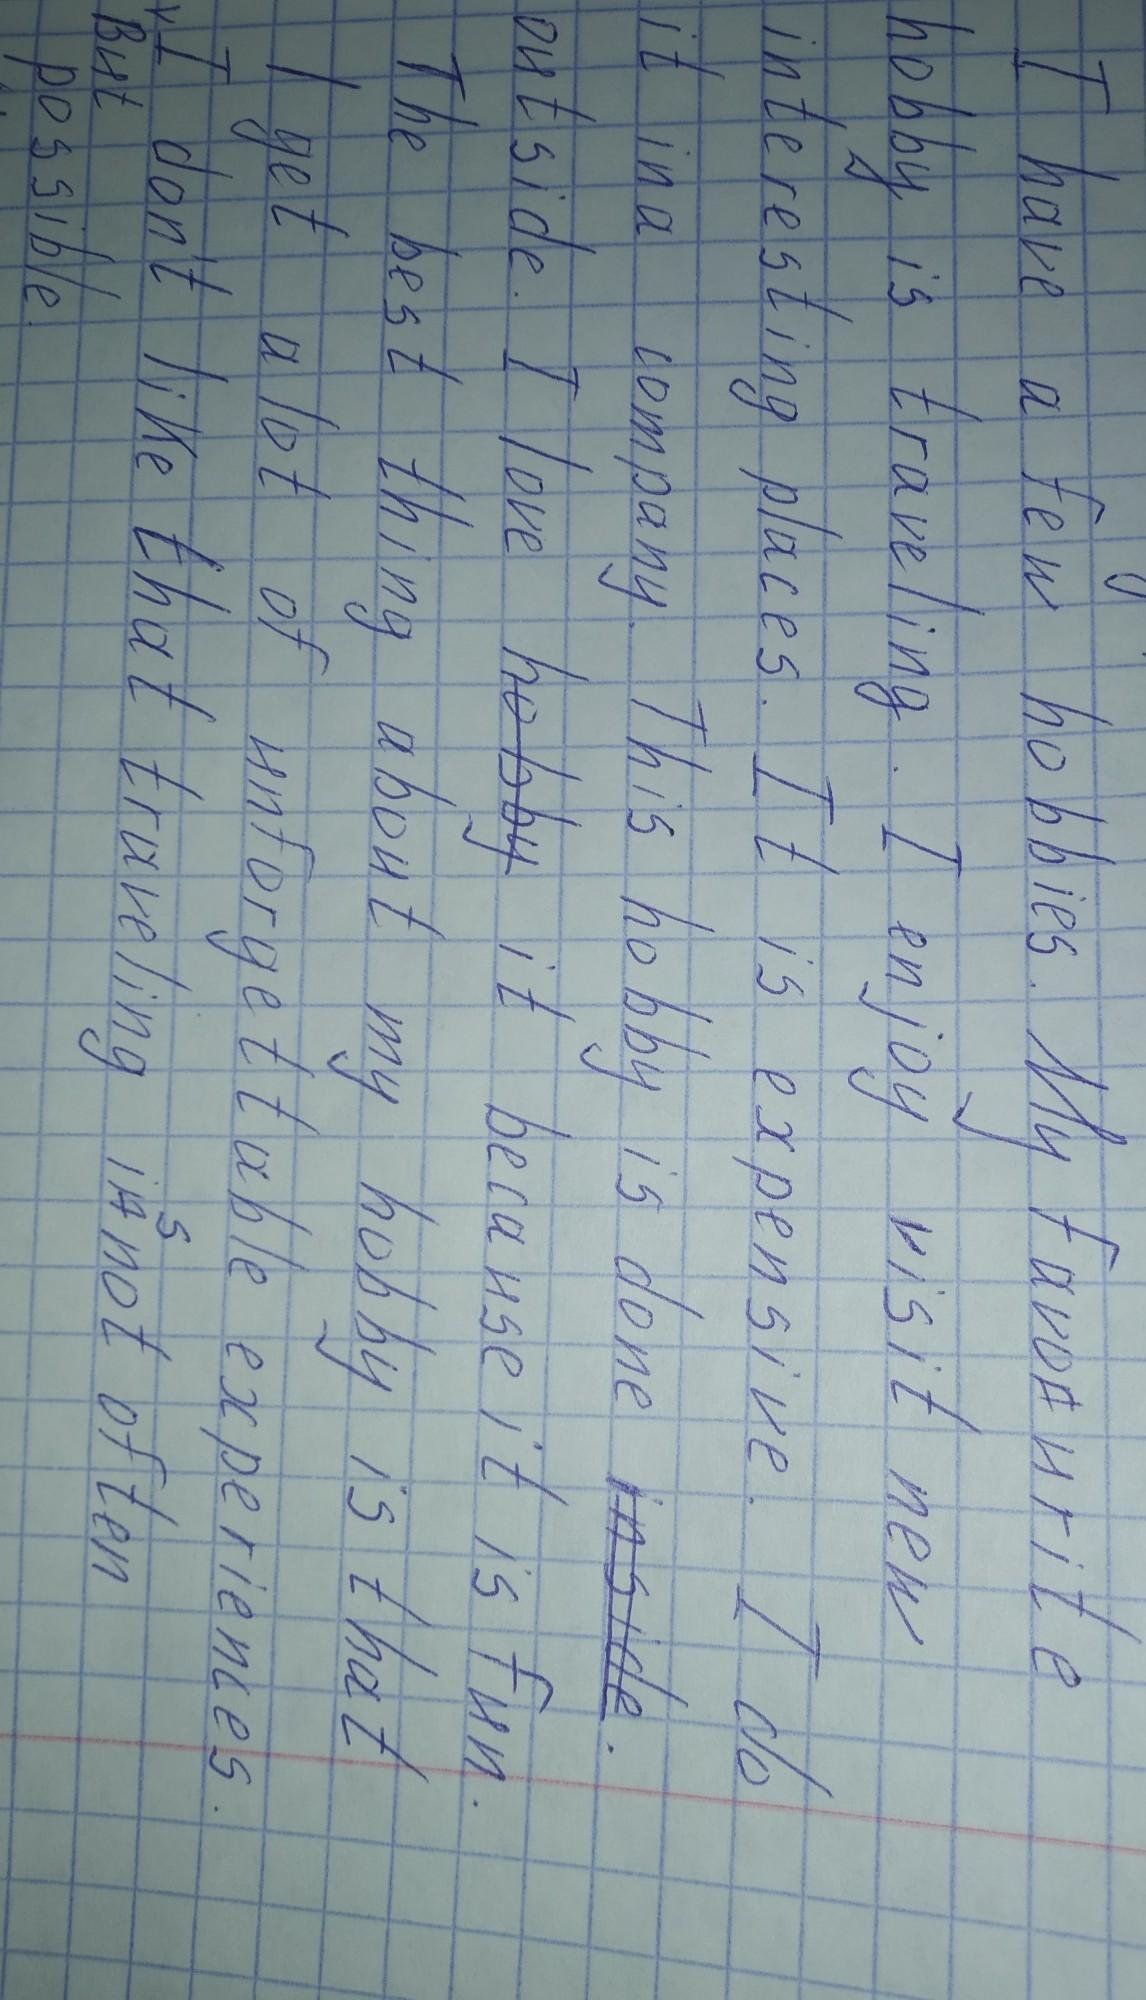 I have a few hobbies. My favourite
hobby is traveling. I enjoy visit new
interesting places. It is expensive. I do
it in a company. This hobby is done inside.
outside. I love hobby it because it is fun.
The best thing about my hobby is that
I get a lot of unforgettable experiences.
But I don't like that traveling is not often
possible.